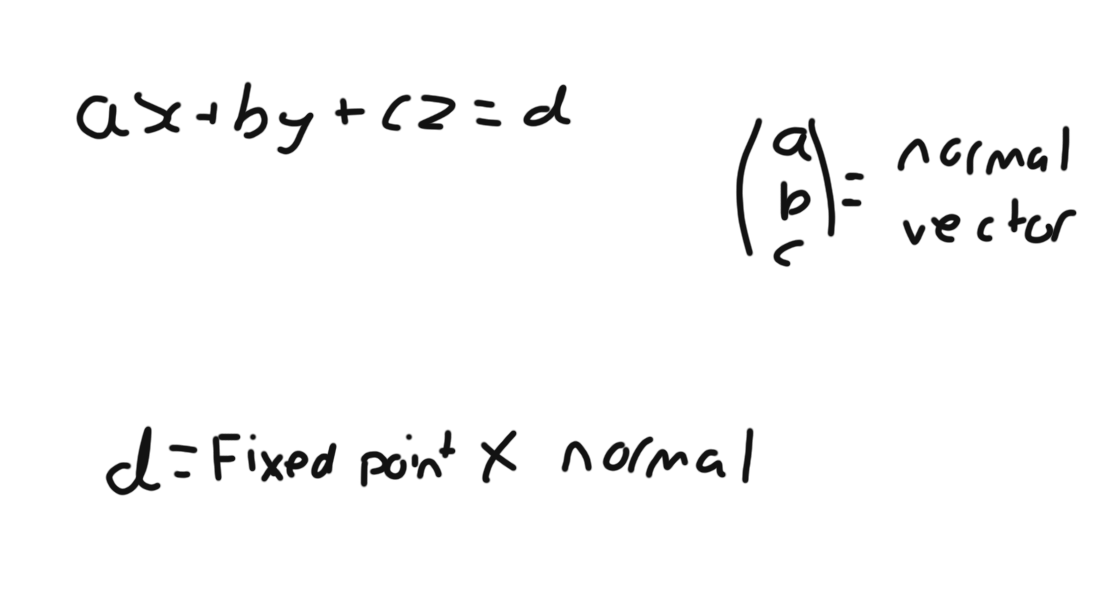 ax+by+cz=d
(a b c) = normal vector
d=Fixed point X normal